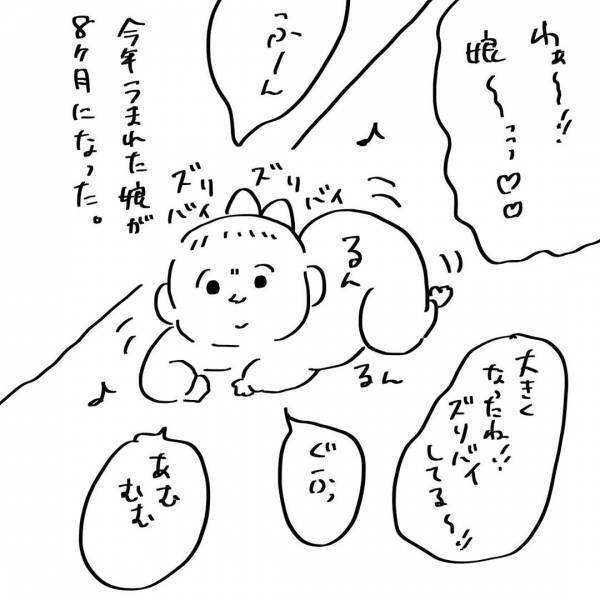 わぁ〜!!
娘〜〜っっ♡♡
ふーん
今年うまれた娘が
8ヶ月になった。
ズリバイ
ズリバイ
るん
るん
大きく
なったね!!
ズリバイ
してる〜!!
ぐーっ
あむ
むむ